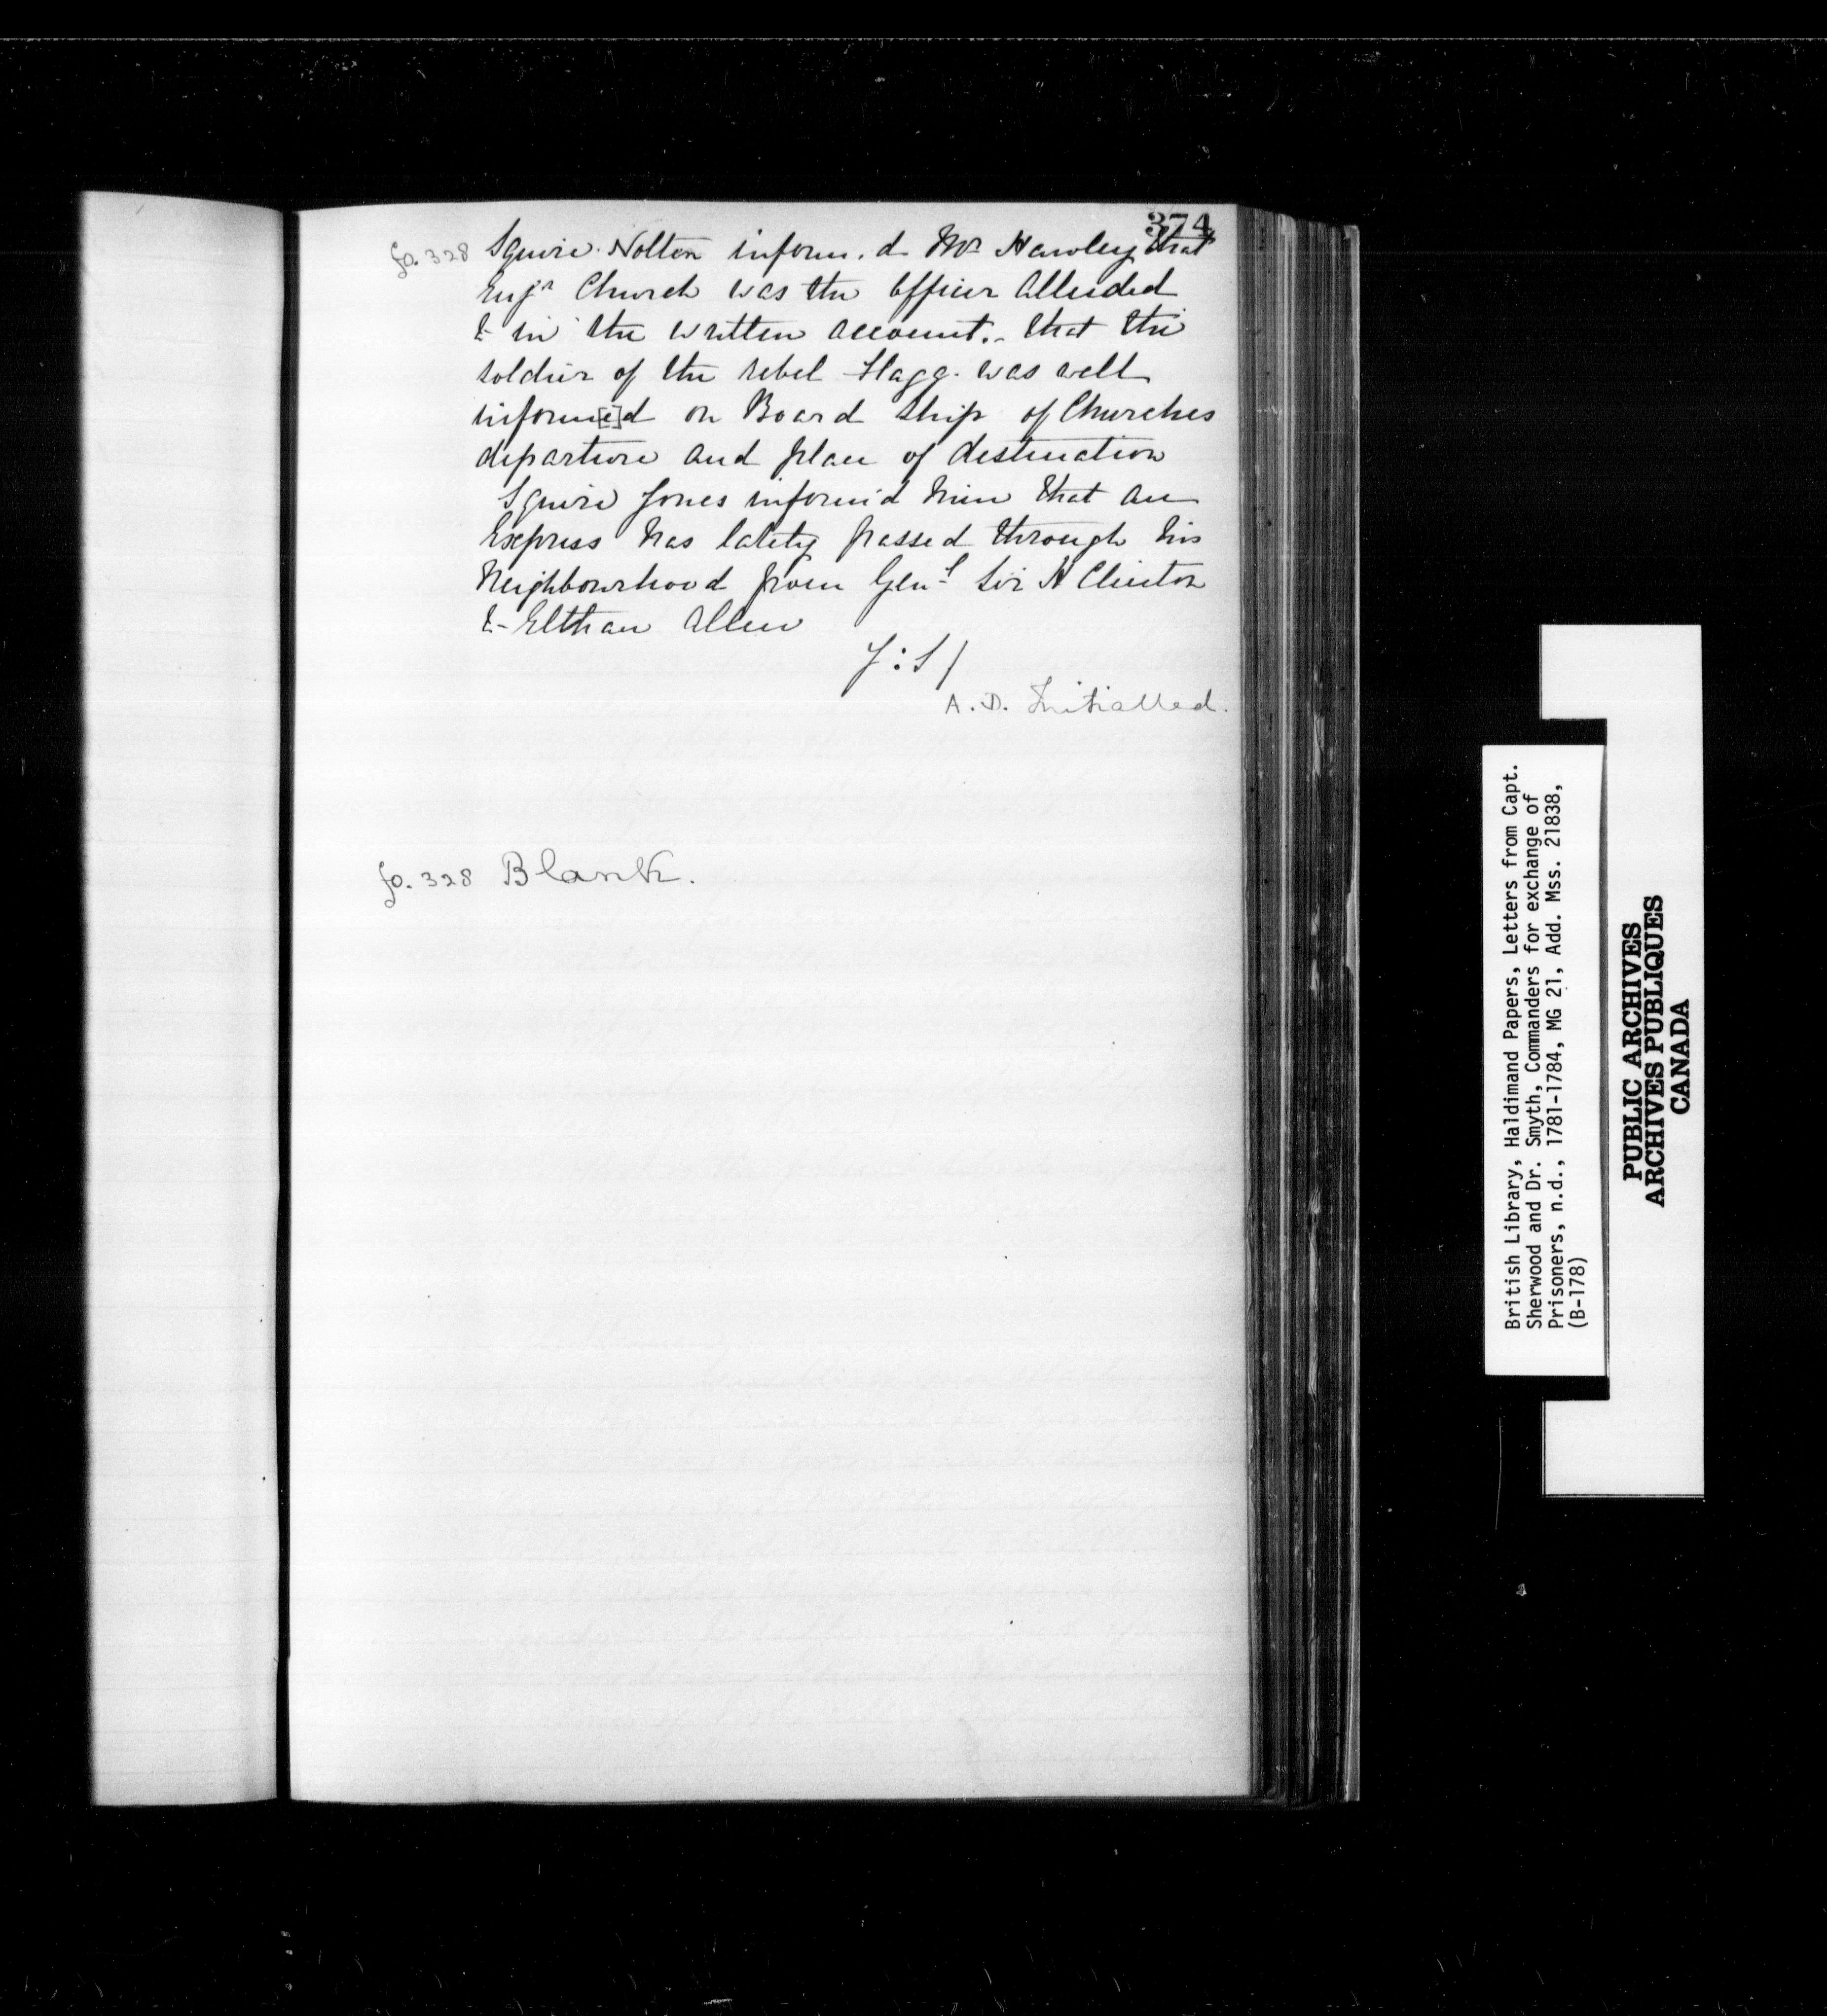 374
fo. 328 Squire Nolten inform.d Mr Hawley that
Ensn Church was the officer Alleuded
to in the written account.- that the
soldier of the rebel Flagg. was well
inform[e]d on Board ship of Churches
departure and place of destination
Squire Jones inform'd him that an
Express has lately passed through his
Neighbourhood from Genl Sir H Clinton
to Elthan Allen
J:S/
A.D. Initialled.
fo. 328 Blank.
British Library, Haldimand Papers, Letters from Capt.
Sherwood and Dr. Smyth, Commanders for exchange of
Prisoners, n.d., 1781-1784, MG 21, Add. Mss. 21838,
(B-178)
PUBLIC ARCHIVES
ARCHIVES PUBLIQUES
CANADA